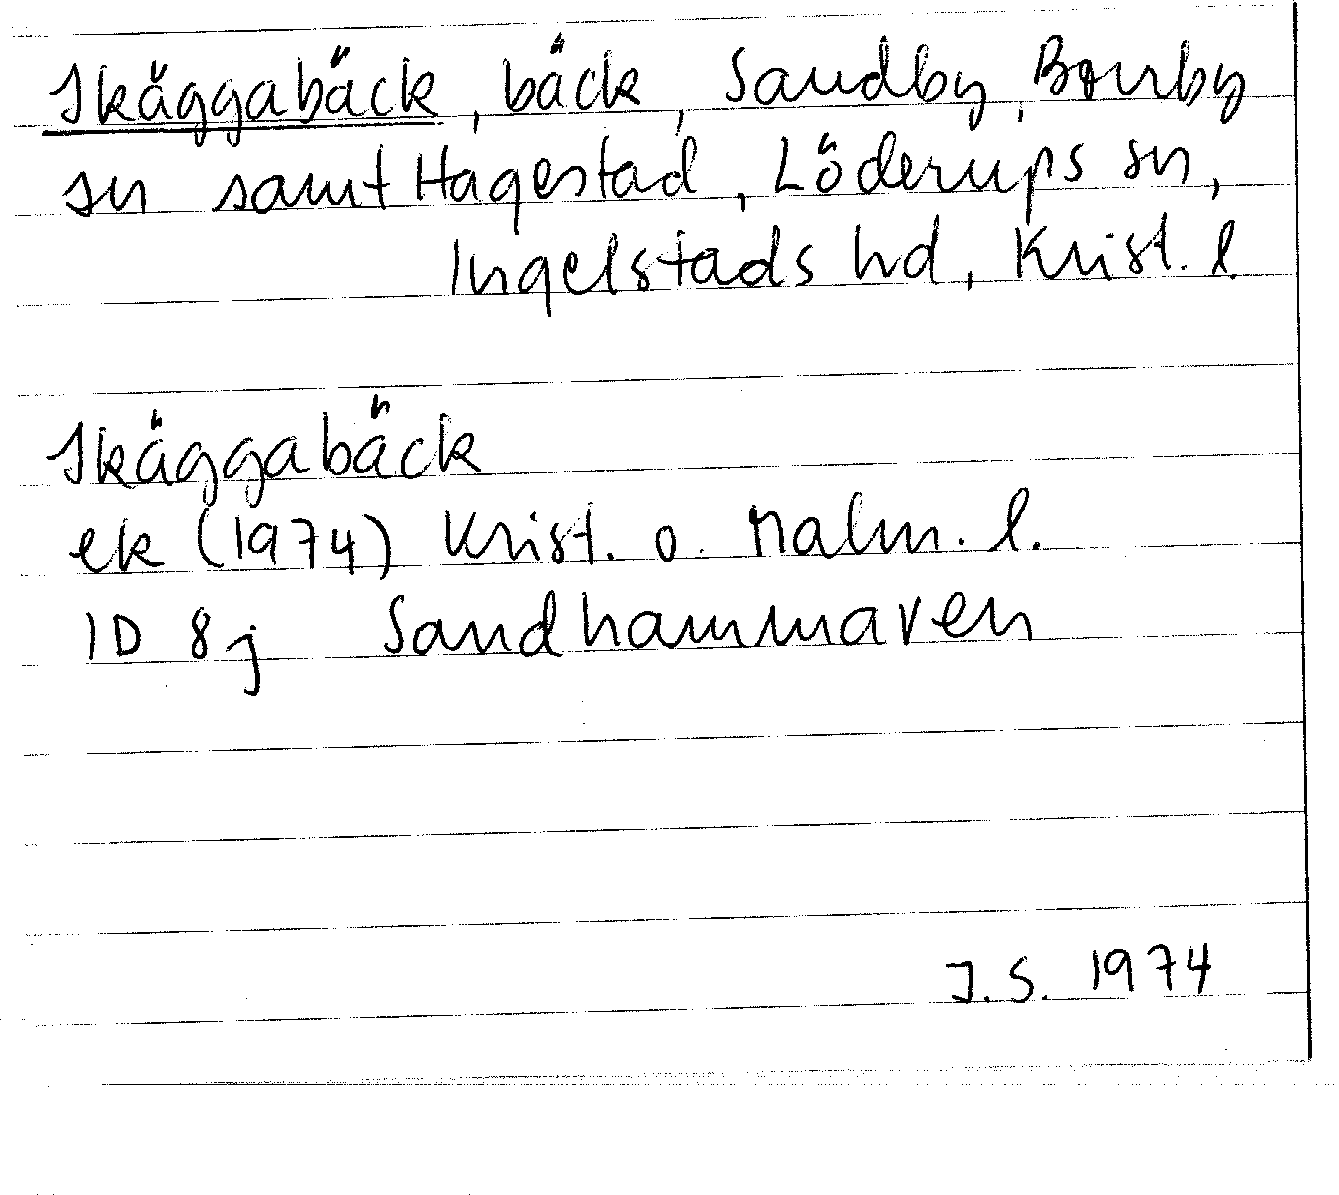 Skäggabäck, bäck, Sandby, Borrby
sn samt Hagestad, Löderups sn,
Ingelstads hd, Krist. l.
Skäggabäck
ek (1974) Krist. o. Malm. l.
1D 8j Sandhammaren
J.S. 1974